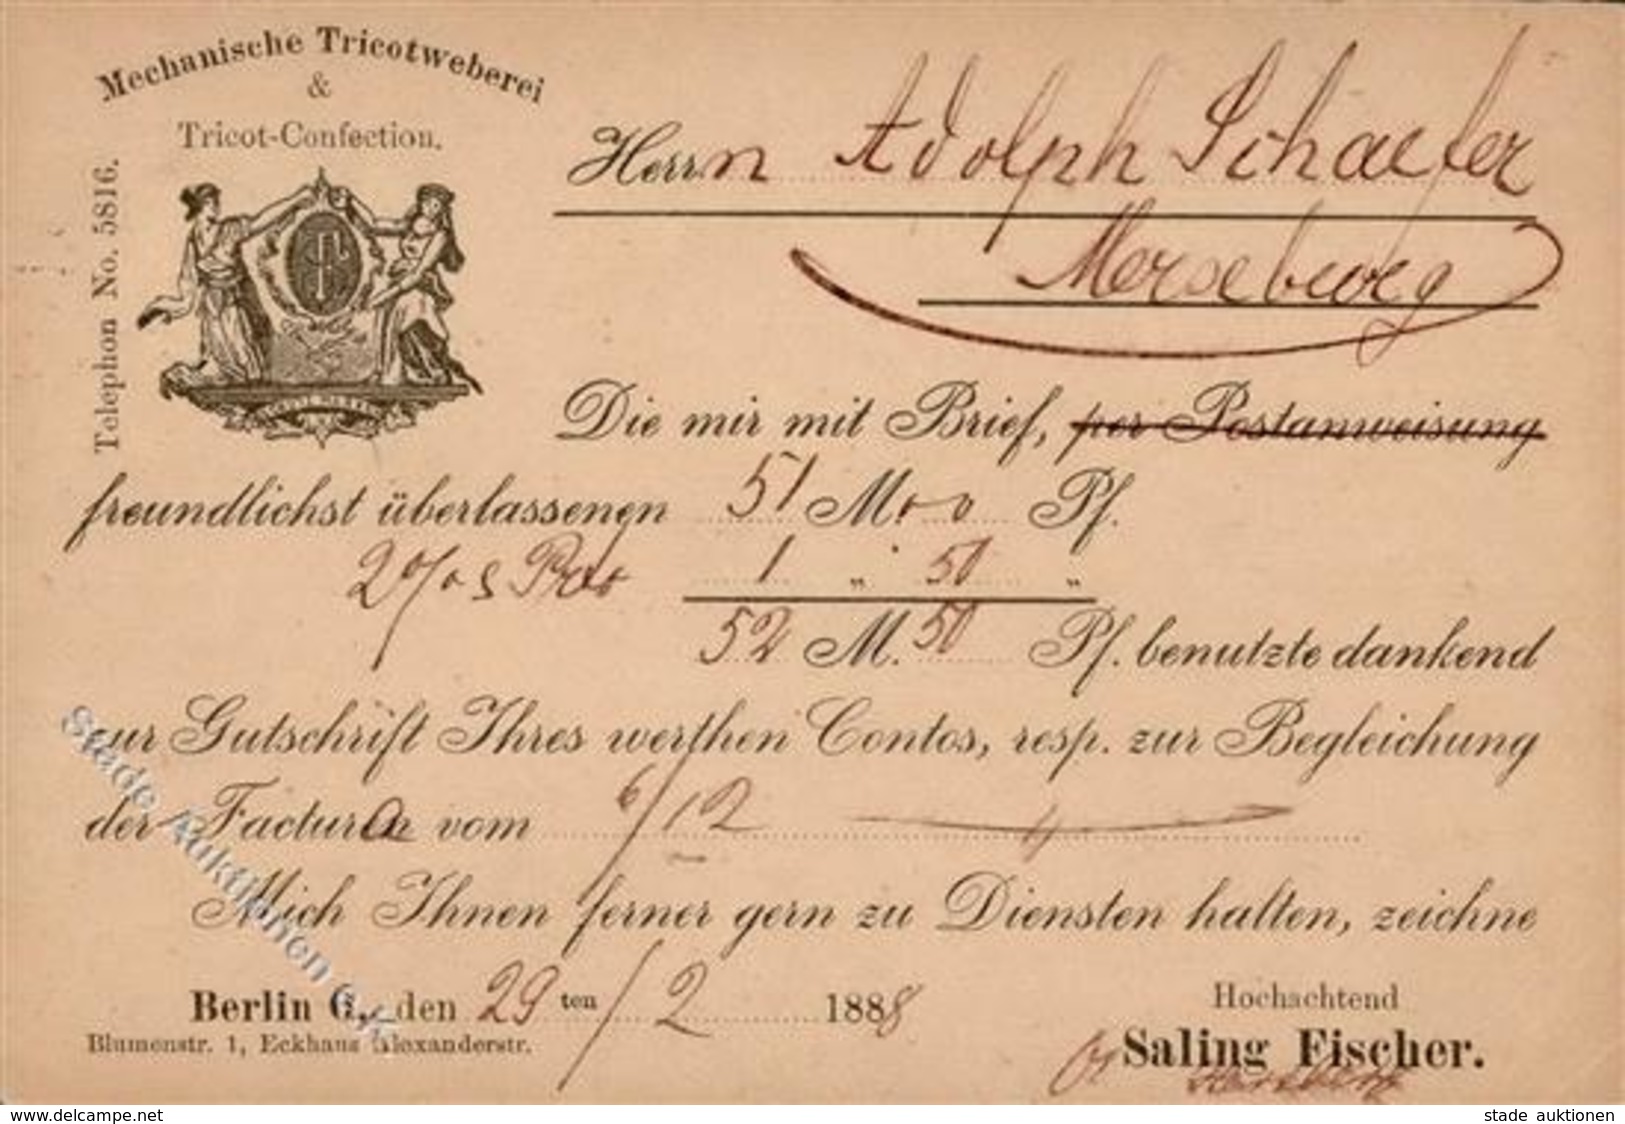 Mechanische Tricotweberei
&
Tricot-Confection.
Telephon No. 5816.
Herrn Adolph Schaefer
Merseburg
Die mir mit Brief, per Postanweisung
freundlichst überlassenen 51 M. Pf.
2% S 1 „ 50 „
52 M. 50 Pf. benutzte dankend
zur Gutschrift Ihres werthen Contos, resp. zur Begleichung
der Factura vom 6/12
Mich Ihnen ferner gern zu Diensten halten, zeichne
Berlin C., den 29ten / 2 1888
Blumenstr. 1, Eckhaus Alexanderstr.
Hochachtend
Saling Fischer.
Stade Auktionen
www.delcampe.net
stade auktionen